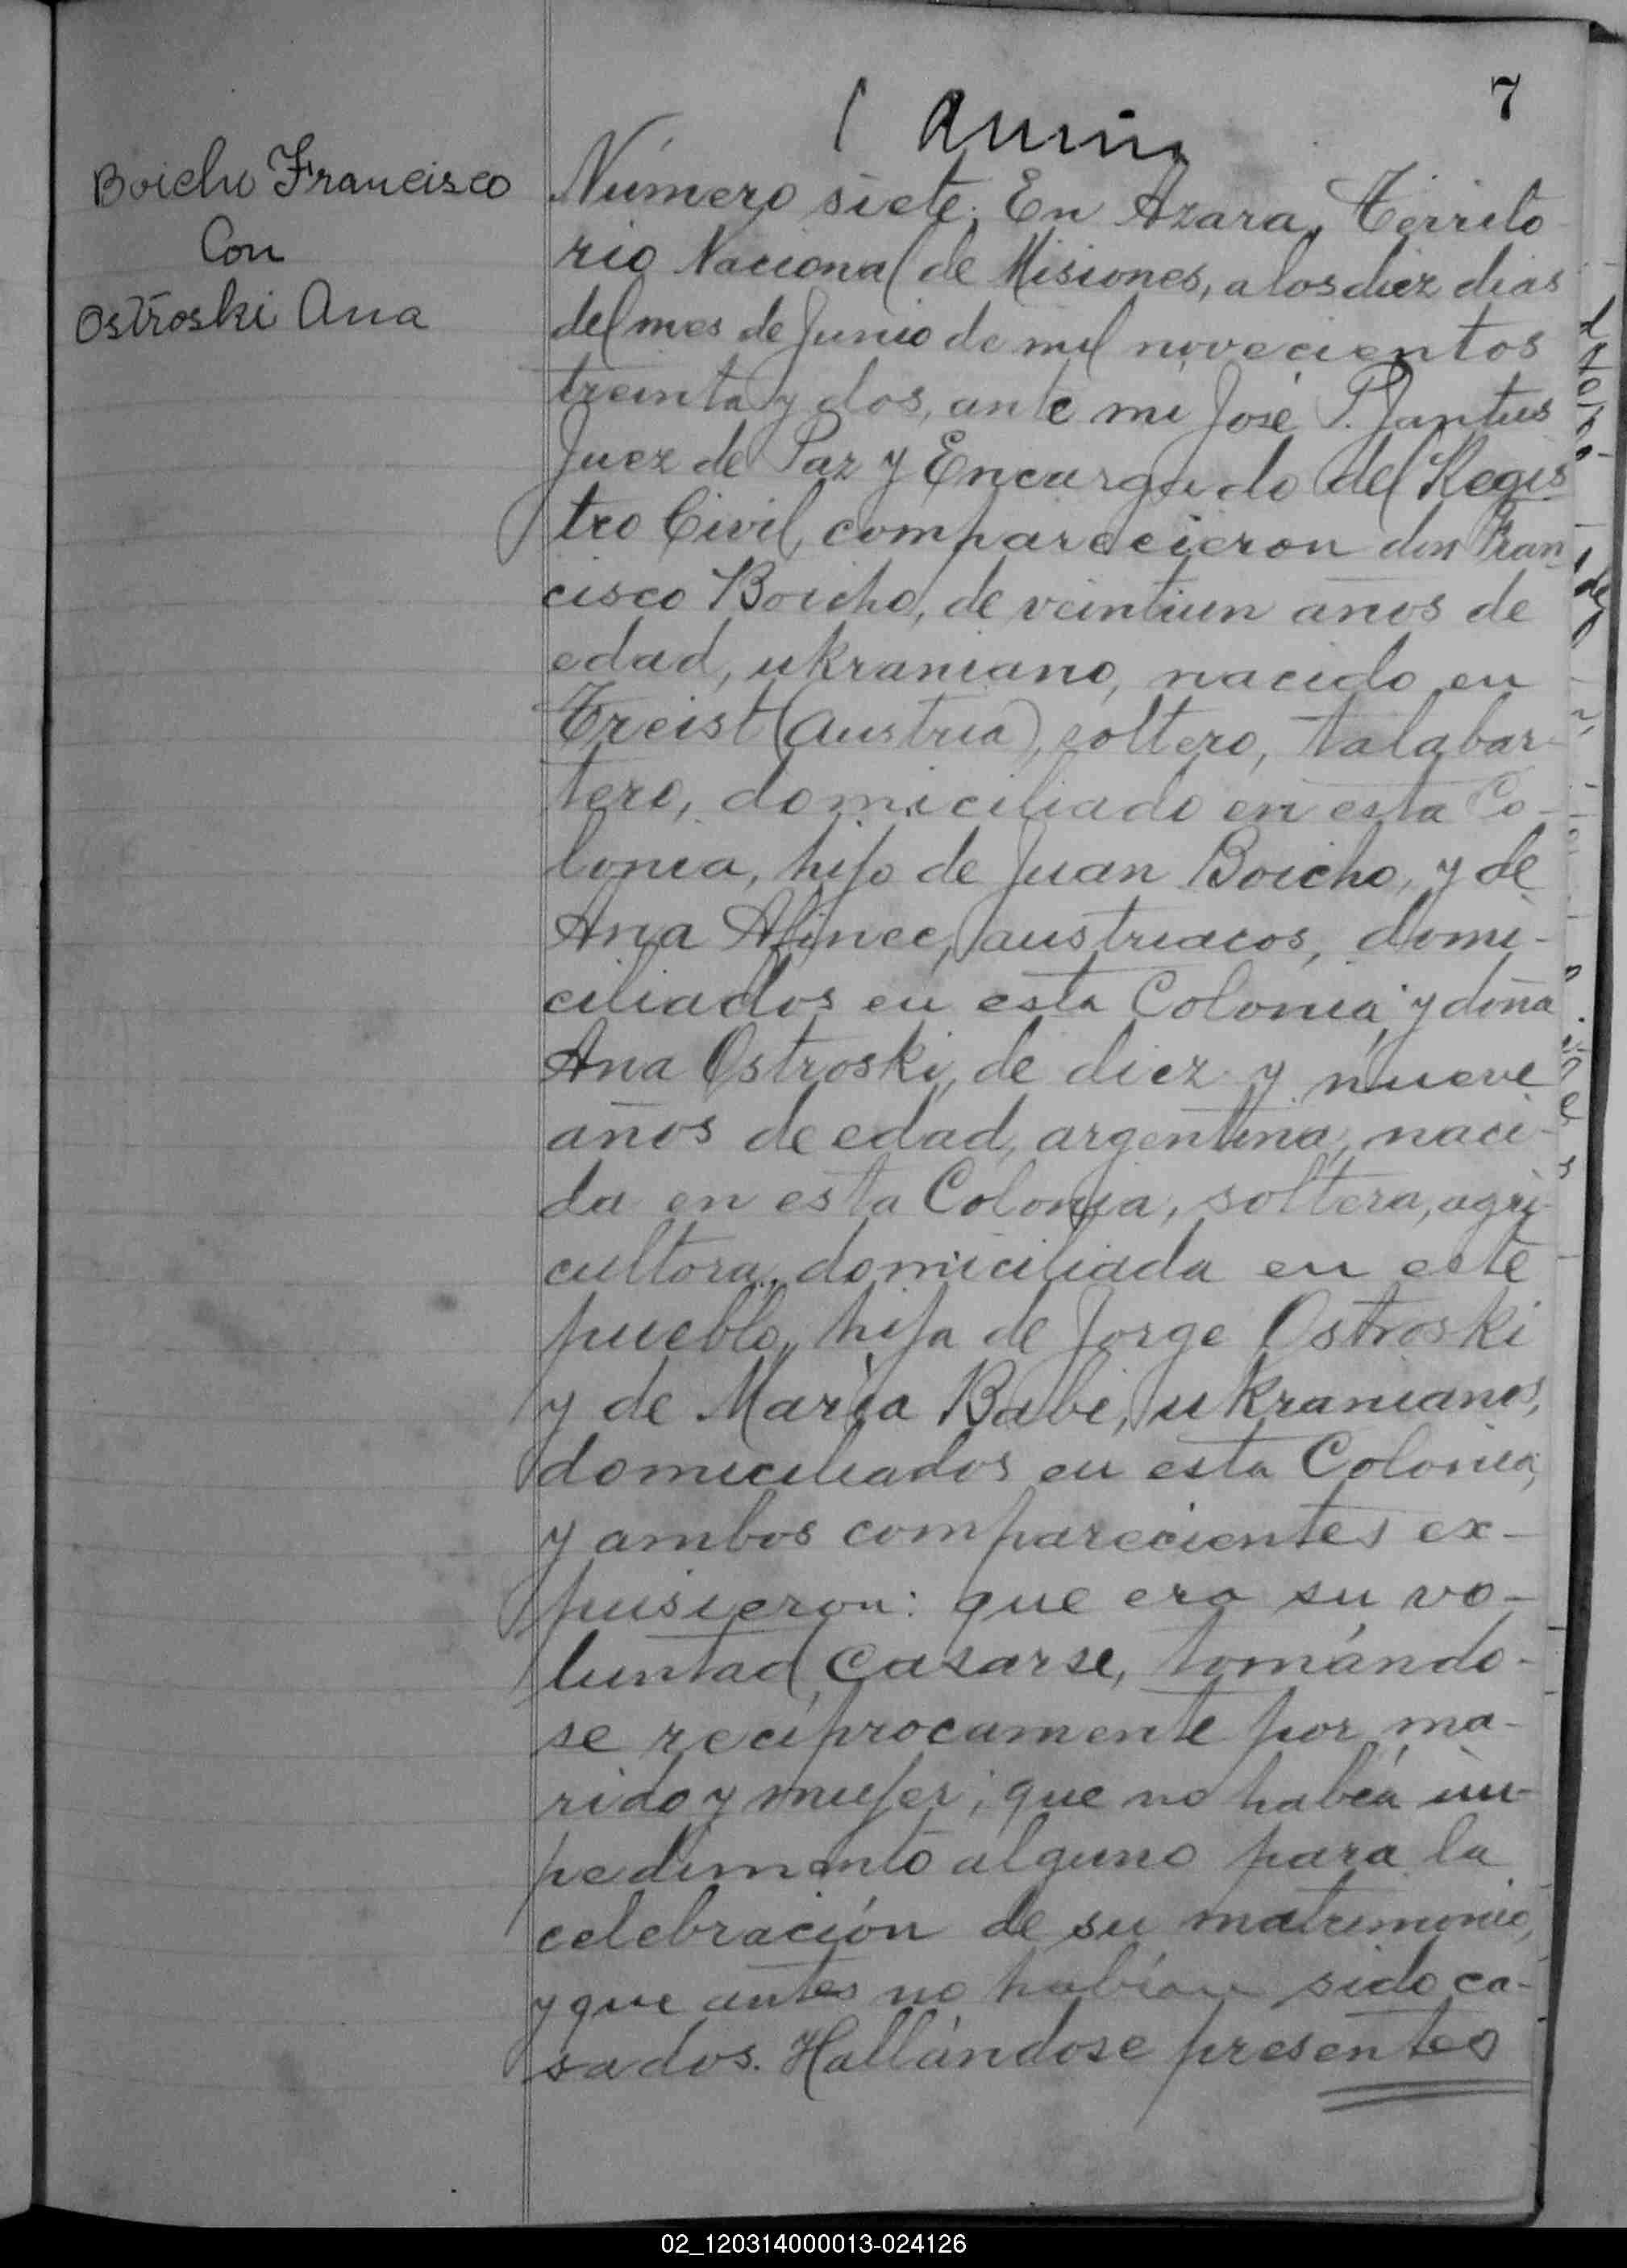 7
Boicho Francisco
Con
Ostroski Ana
Número siete. En Azara, Territo-
rio Nacional de Misiones, a los diez dias
del mes de Junio de mil novecientos
treinta y dos, ante mi José P.
Juez de Paz y Encargado del Regis
tro Civil, comparecieron don Fran
cisco Boicho, de veintiun años de
edad, ukraniano, nacido en
Treist (Austria), soltero, talabar-
tero, domiciliado en esta Co-
lonia, hijo de Juan Boicho, y de
Ana austriacos, domi-
ciliados en esta Colonia; y doña
Ana Ostroski, de diez y nueve
años de edad, argentina, naci-
da en esta Colonia, soltera, agri-
cultora, domiciliada en este
pueblo, hija de Jorge Ostroski
y de María Babi, ukranianos,
domiciliados en esta Colonia,
y ambos comparecientes ex-
pusieron: que era su vo-
luntad casarse, tomándo-
se recíprocamente por ma-
rido y mujer; que no había im-
pedimento alguno para la
celebración de su matrimonio,
y que antes no habían sido ca-
sados. Hallándose presentes
02_120314000013-024126